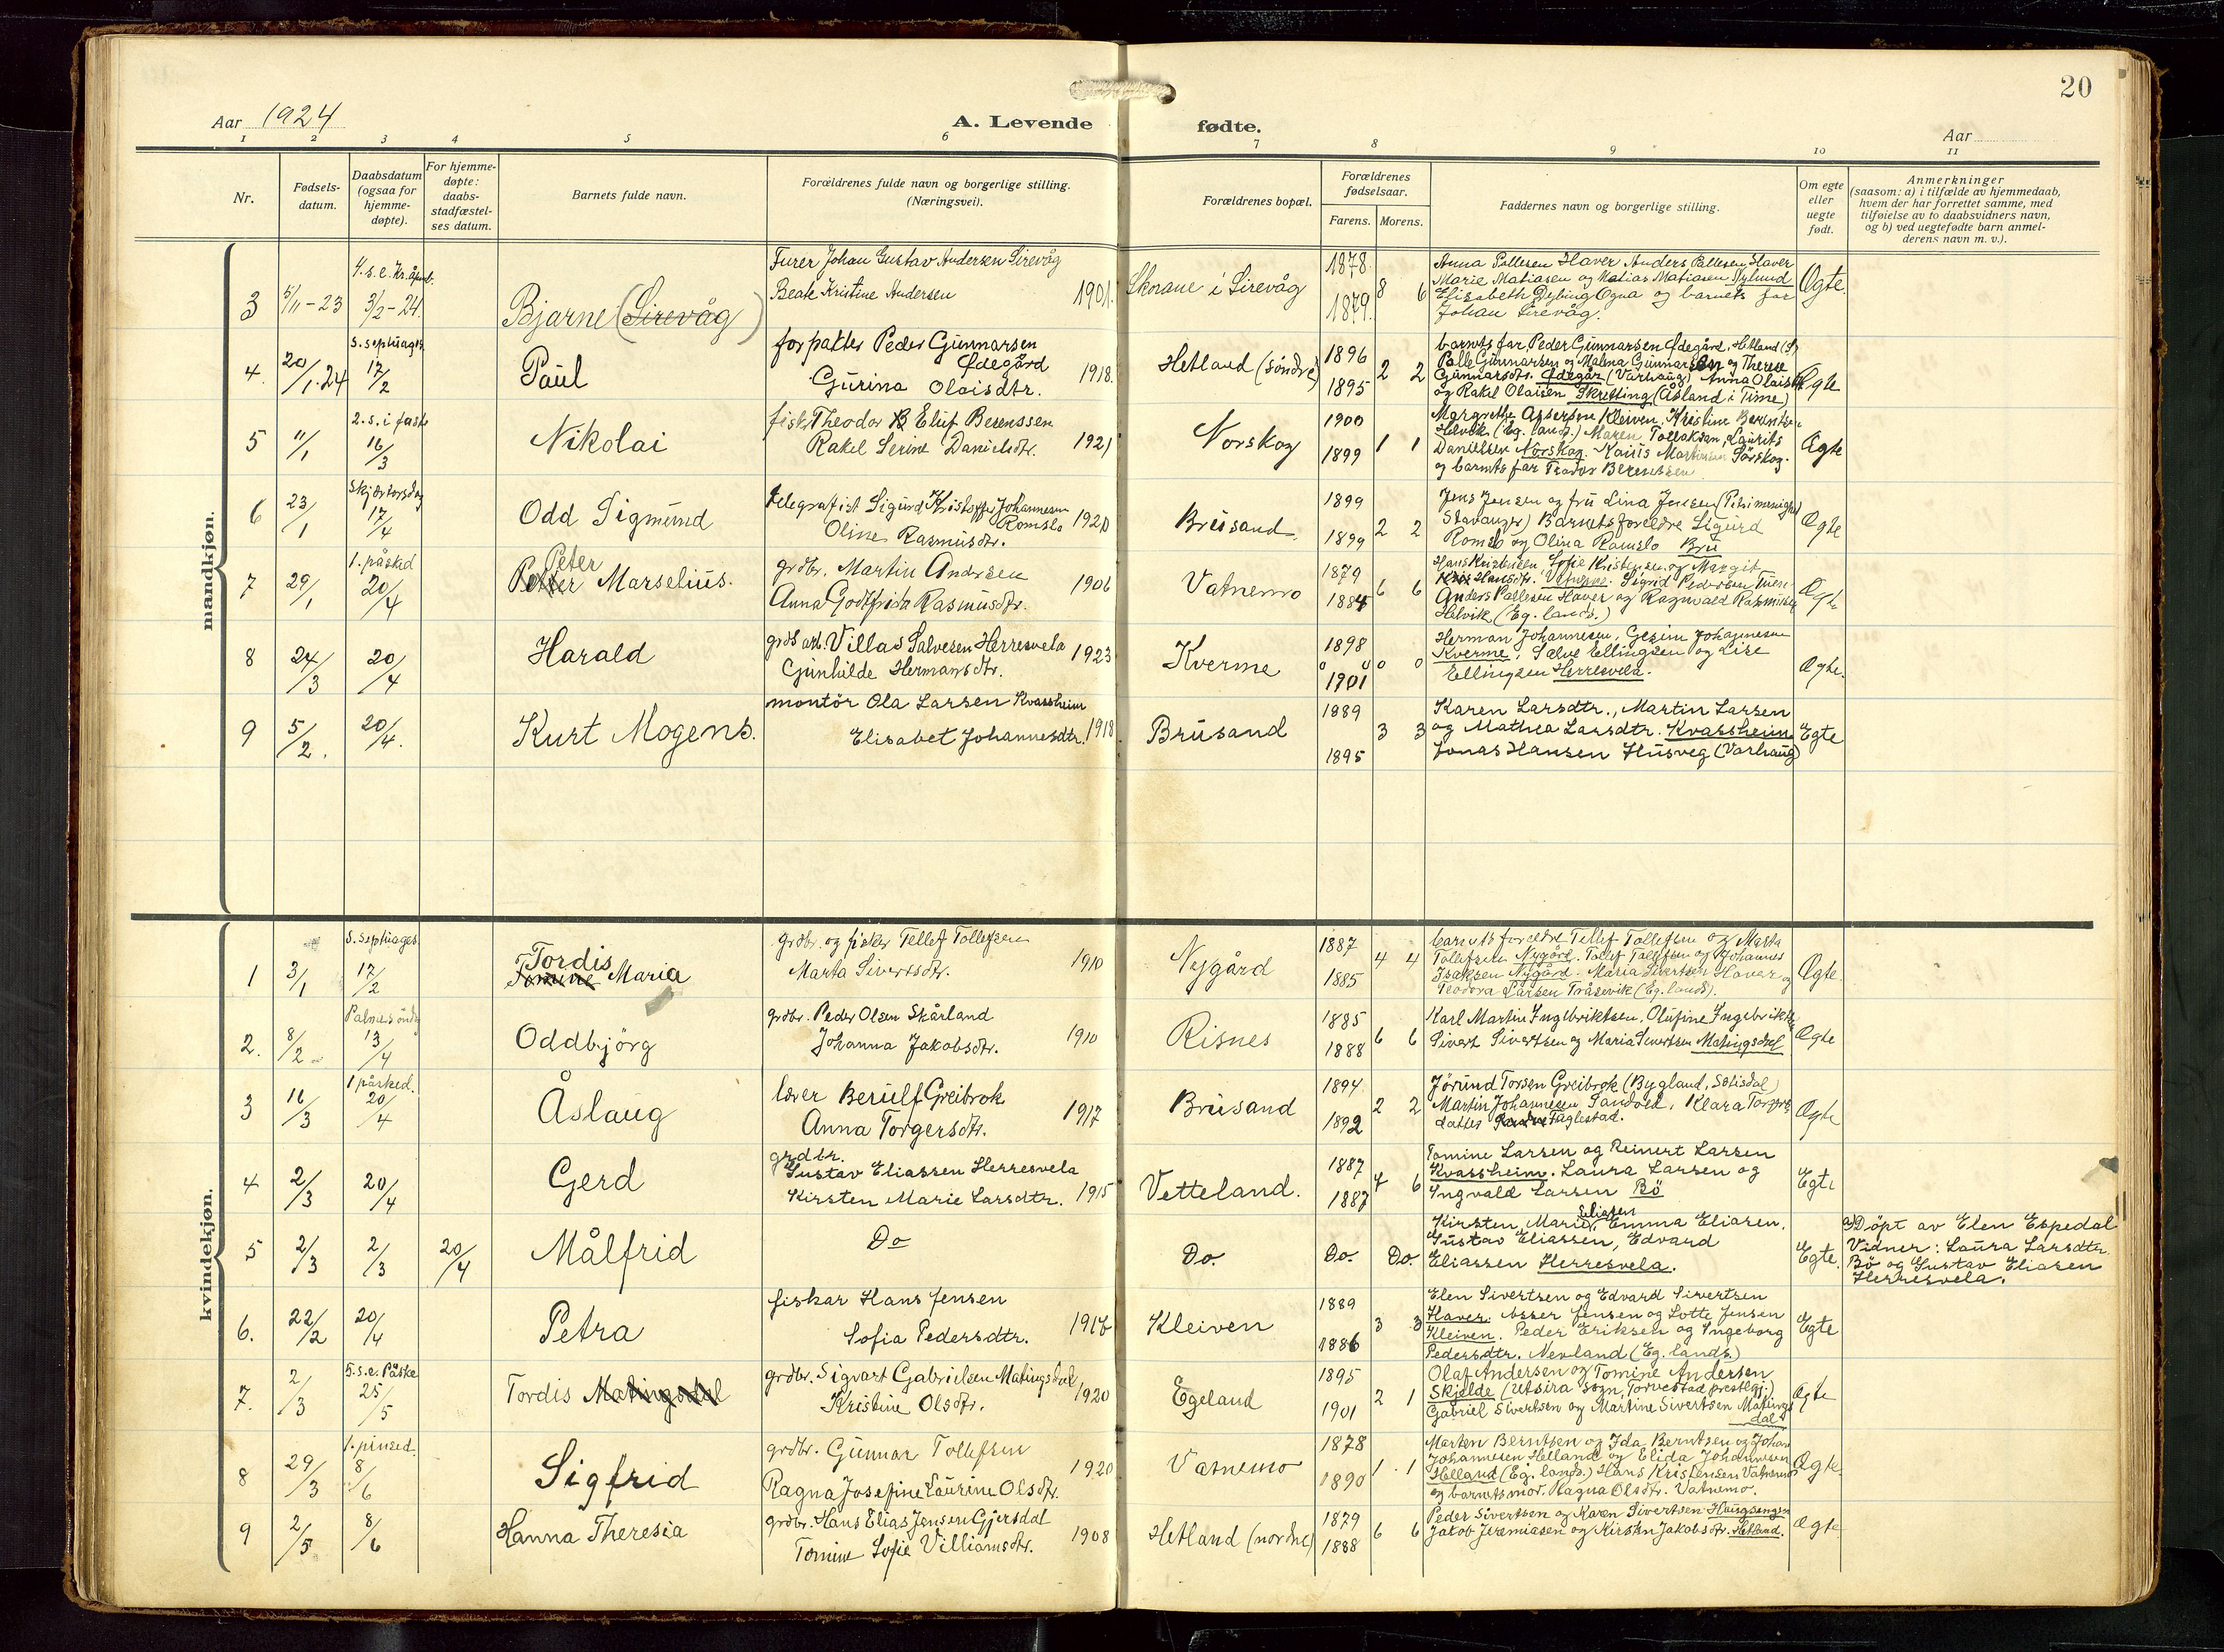 20
Aar 1924
A. Levende
fødte.
Aar
1 2 3 4 5 6 7 8 9 10 11
Nr.
Fødsels-
datum.
Daabsdatum
(ogsaa for
hjemme-
døpte).
For hjemme-
døpte:
daabs-
stadfæstel-
ses datum.
Barnets fulde navn.
Forældrenes fulde navn og borgerlige stilling.
(Næringsvei).
Forældrenes bopæl.
Forældrenes
fødselsaar.
Farens. Morens.
Faddernes navn og borgerlige stilling.
Om egte
eller
uegte
født.
Anmerkninger
(saasom: a) i tilfælde av hjemmedaab,
hvem der har forrettet samme, med
tilføielse av to daabsvidners navn,
og b) ved uegtefødte barn anmel-
derens navn m. v.).
mandkjøn.
3
5/11-23
4. s. e. Kr. åpenb.
3/2-24.
Bjarne (Sirevåg)
Furer Johan Gustav Andersen Sirevåg
Beate Kristine Andersen 1901.
Skorane i Sirevåg
1878
1879.
8 6
Anna Pallesen Haver Anders Pallesen Haver
Marie Matiasen og Matias Matiasen Nylund
Elisabeth Dybing Ogna og barnets far
Johan Sirevåg.
Ogte.
4.
20/1.24
s. septuages.
17/2
Paul
forpakter Peder Gunnarsen
Ødegård
Gurina Olaisdtr. 1918.
Hetland (søndre)
1896
1895
2 2
barnets far Peder Gunnarsen Ødegård, Helland (S)
Palle Gunnarsen og Malena Gunnarsen og Therese
Gunnarsdtr. Ødegår (Varhaug) Anna Olaisdtr
og Rakel Olaisen Skretting (Åsland i Time)
Ægte
5
11/1
2. s. i faste
16/3
Nikolai
fisk. Theodor B Eluf Berenssen
Rakel Serine Danielsdtr. 1921
Norskog
1900
1899
1 1
Margrethe Assersen Kleiven, Kristine Berentsen
Helvik (Eg. lands.) Maren Tollaksen, Laurits
Danielsen Norskog. Martinsen Sørskog.
og barnets far Teodor Berentsen
Ægte
6
23/1
Skjærtorsdag
17/4
Odd Sigmund
telegrafist Sigurd Kristoffer Johannesen
Romslo
Oline Rasmusdtr. 1920
Brusand.
1899
1899
2 2
Jens Jensen og fru Lina Jensen (Petri menighed
Stavanger) Barnets foreldre Sigurd
Romslo og Olina Romslo Bru
Ægte
7
29/1
1. påsked
20/4
Peter
Petter Marselius.
grdbr. Martin Andrsen
Anna Godtfrida Rasmusdtr. 1906
Vatnemo
1879
1884
6 6
Hans Kristensen, Sofie Kristensen og Margit
Hansdtr. Vatnemo. Sigrid Pedersen Tuen
Anders Pallesen Haver og Ragnvald Rasmusen
Helvik (Eg. lands.)
Ægte
8
24/3
20/4
Harald
grds arb. Villas Salvesen Herresvela
Gunhilde Hermansdtr. 1923
Kverme
1898
1901
0 0 0 0
Herman Johannesen, Gesine Johannesen
Kverme, Salve Ellingsen og Lise
Ellingsen Herresvela.
Ægte.
9
5/2.
20/4.
Kurt Mogens.
montör Ola Larsen Kvassheim
Elisabet Johannesdtr. 1918
Brusand
1889
1895
3 3
Karen Larsdtr., Martin Larsen
og Mathea Larsdtr. Kvassheim
Jonas Hansen Husveg (Varhaug)
Egte
kvindekjøn.
1
3/1
s. septuages.
17/2
Tordis
Tomine Maria
grdbr. og fisker Tellef Tollefsen
Marta Sivertsdtr. 1910
Nygård
1887
1885
4 4
barnets foreldre Tellef Tollefsen og Marta
Tollefsen Nygård. Tollef Tollefsen og Johannes
Isaksen Nygård. Maria Sivertsen Haver og
Teodora Larsen Tråsevik (Eg. lands).
Ægte.
2.
8/2
Palmesønda
13/4
Oddbjörg
grdbr. Peder Olsen Skårland
Johanna Jakobsdtr. 1910
Risnes
1885
1888
6 6
Karl Martin Ingebriktsen, Olufine Ingebriktsen
Sivert Sivertsen og Maria Sivertsen Matingsdal
Ægte
3
16/3
1 påsked.
20/4
Åslaug
lærer Berulf Greibrok
Anna Torgersdtr. 1917
Brusand
1894
1892
2 2
Jörund Torsen Greibrok (Bygland, Setisdal)
Martin Johannesen Sandold, Klara Torgers
datter Faglestad.
Ægte
4
2/3
20/4
Gerd
grdbr.
Gustav Eliassen Herresvela
Kirsten Marie Larsdtr. 1915
Vetteland.
1887
1887
4 6
Tomine Larsen og Reinert Larsen
Kvassheim. Laura Larsen og
Ingvald Larsen Bö
Egte
5
2/3
2/3
20/4
Målfrid
Do
Do.
Do.
Do.
Eliasen
Kirsten Marie, Emma Eliasen,
Gustav Eliassen, Edvard
Eliassen Herresvela.
Egte.
a) Döpt av Elen Espedal
Vidner: Laura Larsdtr.
Bö og Gustav Eliasen
Herresvela.
6.
22/2
20/4
Petra
fiskar Hans Jensen
Sofia Pedersdtr. 1916
Kleiven
1889
1886
3 3
Elen Sivertsen og Edvard Sivertsen
Haver. Asser Jensen og Lotte Jensen
Kleiven. Peder Eriksen og Ingeborg
Pedersdtr. Nevland (Eg. lands.)
Egte
7.
2/3
5. s. e. Påske
25/5
Tordis Matingsdal
grdbr. Sigvart Gabrielsen Matingsdal
Kristine Olsdtr. 1920
Egeland
1895
1901
2 1
Olaf Andersen og Tomine Andersen
Skjelde (Utsira sogn, Torvestad prestegj.)
Gabriel Sivertsen og Martine Sivertsen Matings
dal
Ægte
8
29/3
1. pinsed.
8/6
Sigfrid
grdbr. Gunnar Tollefsen
Ragna Josefine Laurine Olsdtr. 1920
Vatnemo
1878
1890
1 1
Marten Berntsen og Ida Berntsen og Johan
Johannesen Helland og Elida Johannesen
Helland (Eg. lands.) Hans Kristensen Vatnemo
og barnets mor. Ragna Olsdtr. Vatnemo.
Ægte.
9
2/5
8/6
Hanna Theresia
grdbr. Hans Elias Jensen Gjersdal
Tomine Sofie Villiamsdtr. 1908
Hetland (nordre)
1879
1888
6 6
Peder Sivertsen og Karen Sivertsen Haugsengen
Jakob Jeremiasen og Kirsten Jakobsdtr. Hetland.
Ægte.